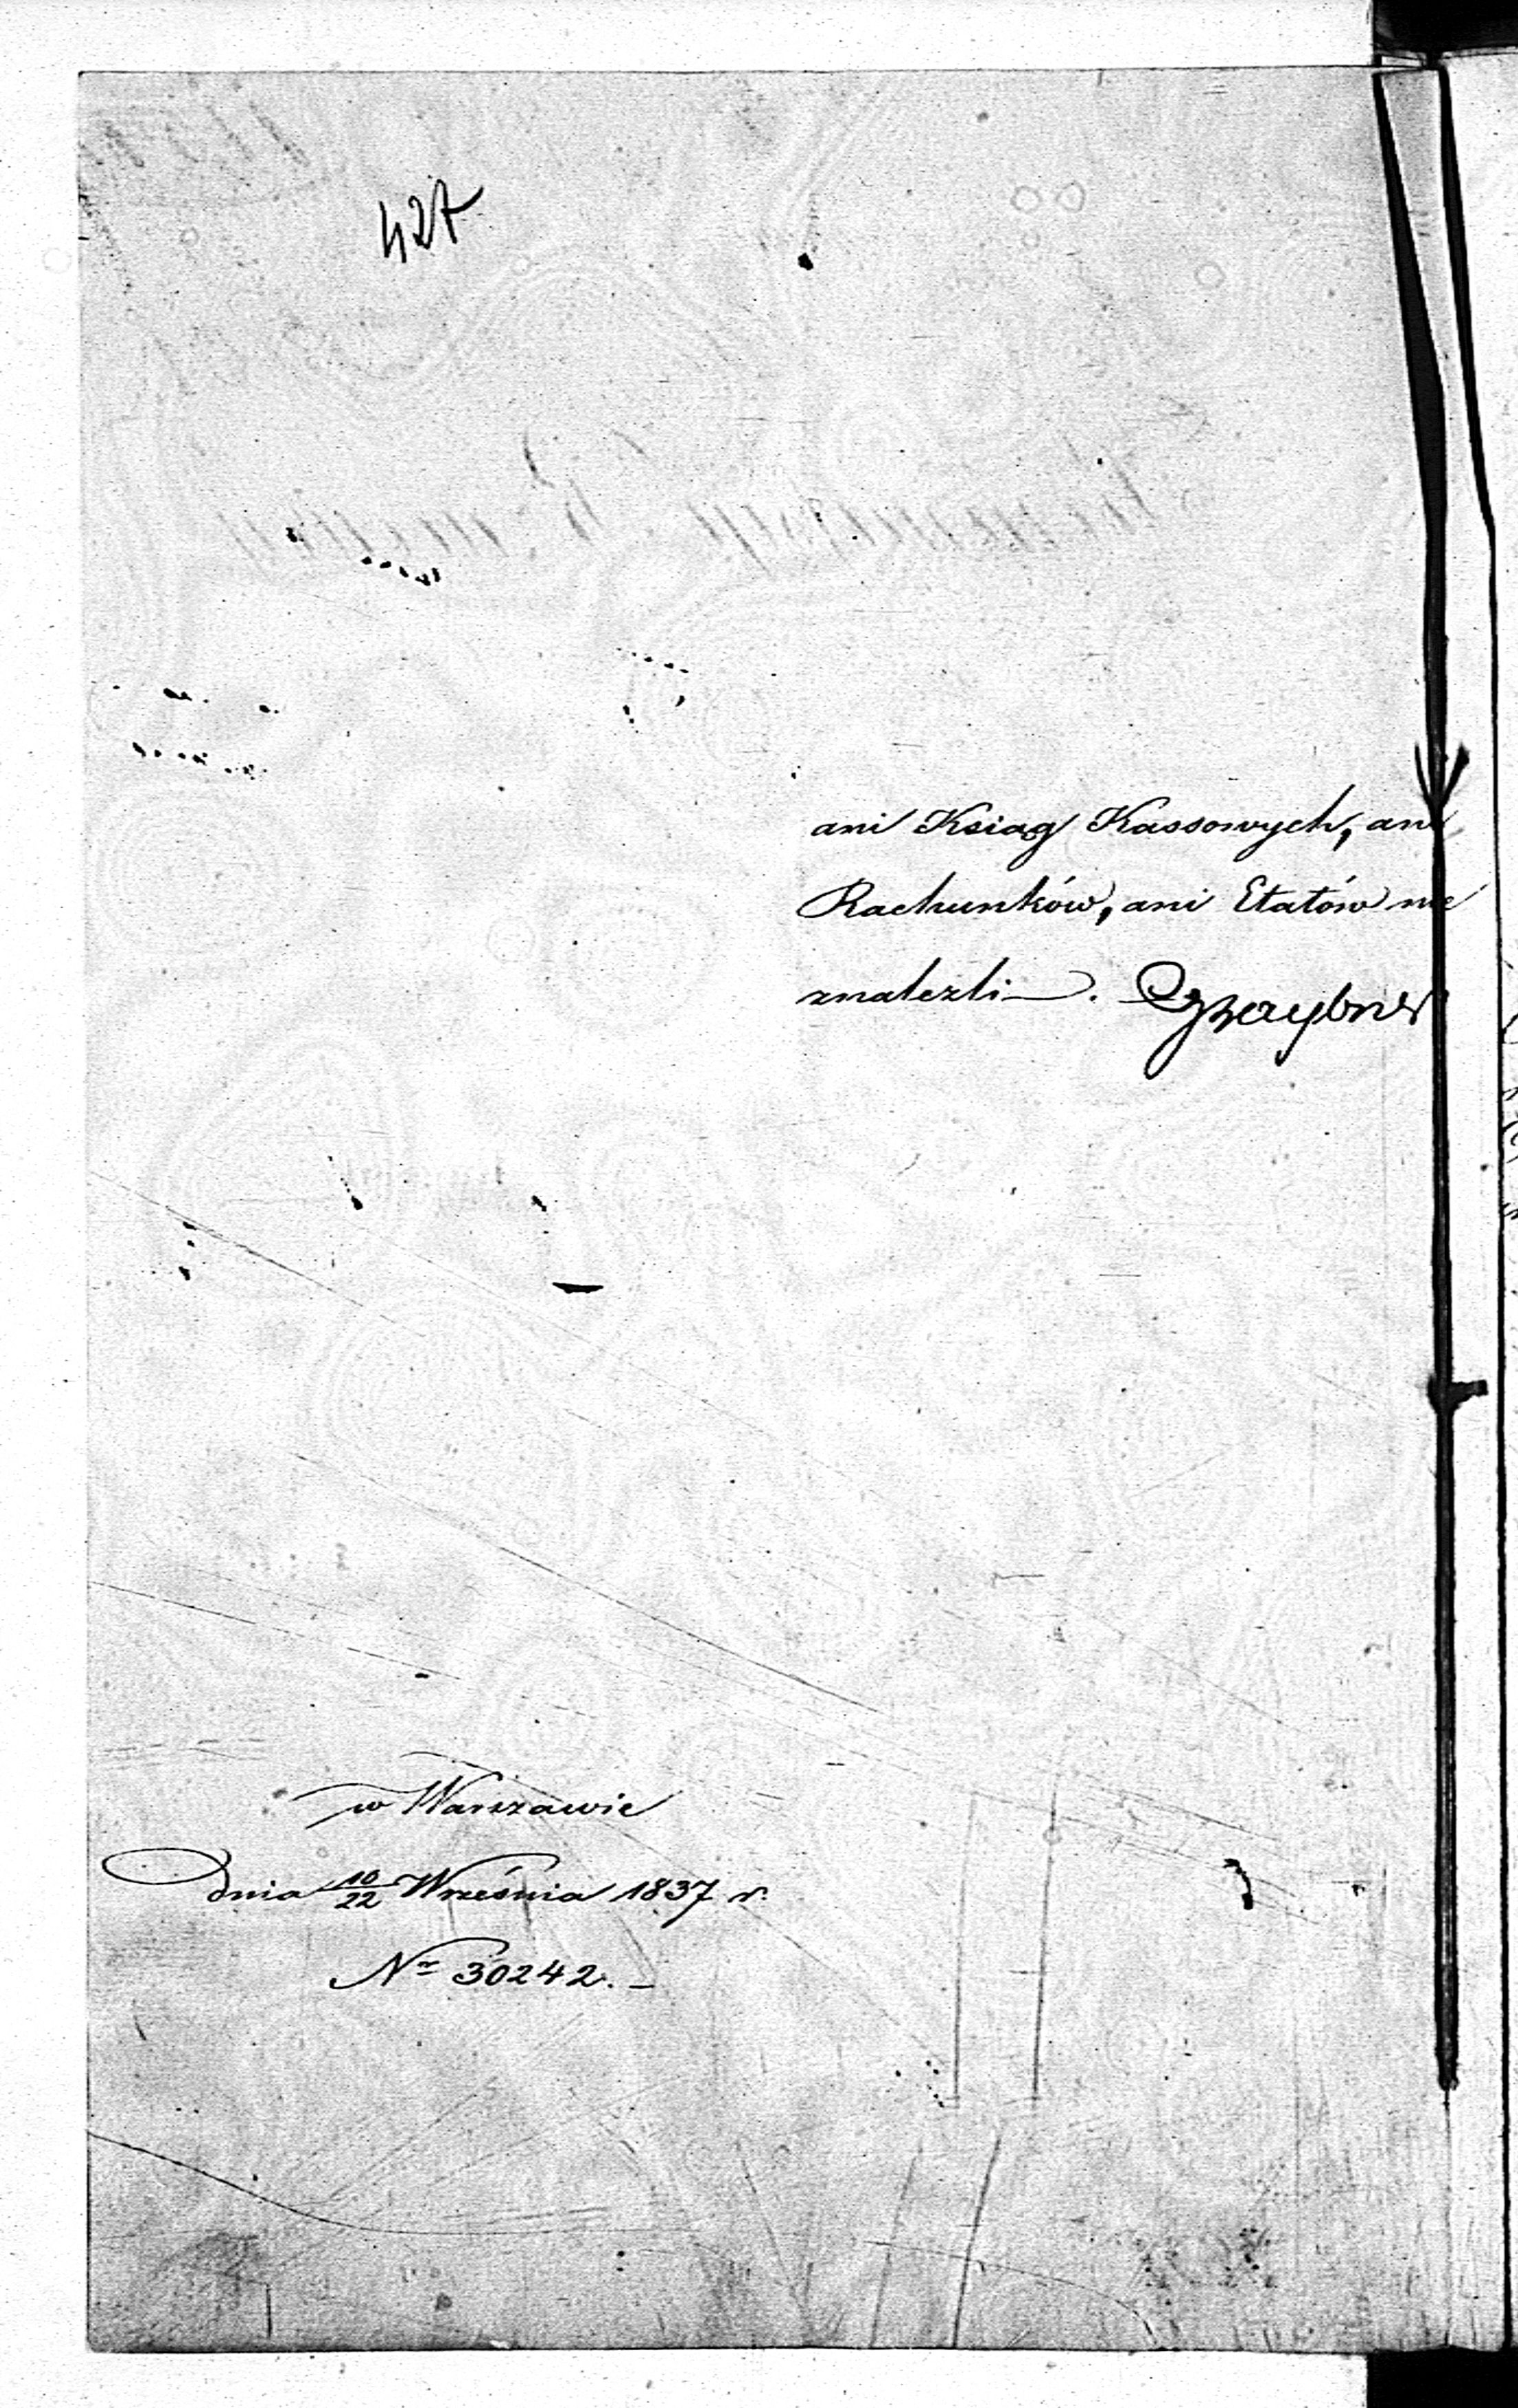 427
ani Ksiąg Kassowych, ani
Rachunków, ani Etatów nie
znalezli.
w Warszawie
dnia 10/22 Września 1837 r.
Nr 30242. –